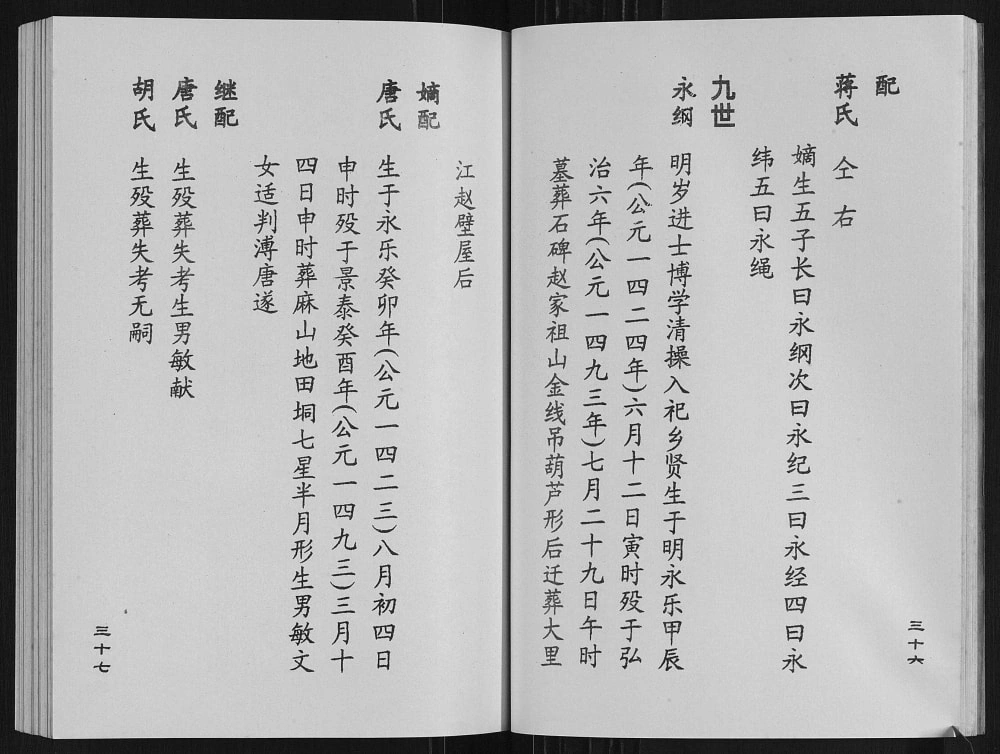 配
蒋氏
仝右
嫡生五子长曰永纲次曰永纪三曰永经四曰永
纬五曰永绳
九世
永纲
明岁进士博学清操入祀乡贤生于明永乐甲辰
年(公元一四二四年)六月十二日寅时殁于弘
治六年(公元一四九三年)七月二十九日午时
墓葬石碑赵家祖山金线吊葫芦形后迁葬大里
三十六
江赵壁屋后
嫡配
唐氏
生于永乐癸卯年(公元一四二三)八月初四日
申时殁于景泰癸酉年(公元一四九三)三月十
四日申时葬麻山地田垌七星半月形生男敏文
女适判溥唐遂
继配
唐氏
生殁葬失考生男敏献
胡氏
生殁葬失考无嗣
三十七